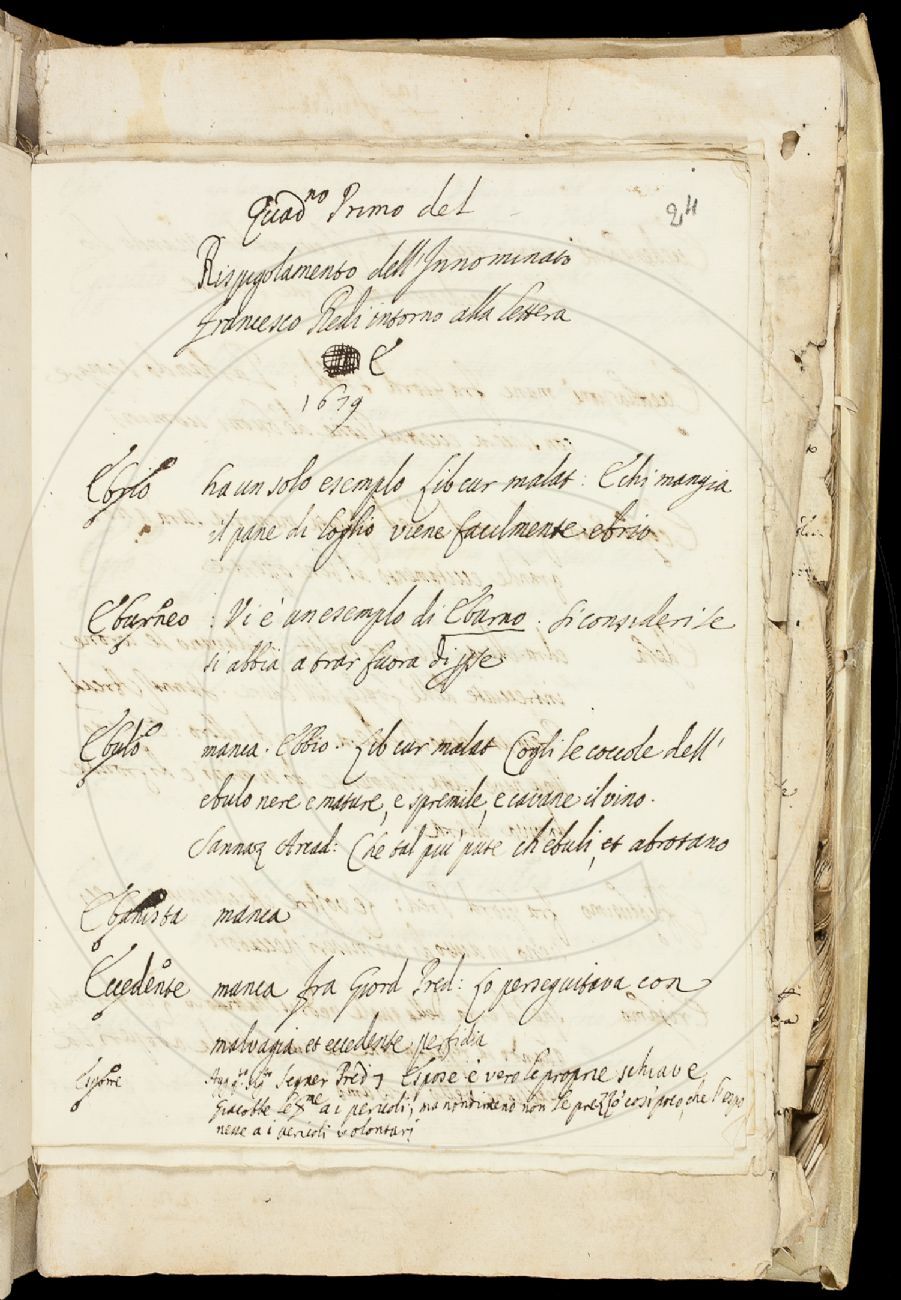 24
Quad.no Primo del
Rispigolamento dell'Innominato
Francesco Redi intorno alla lettera
E
1679
Ebrio ha un solo esemplo Lib cur malat: E chi mangia
il pane di loglio viene facilmente ebrio
Eburneo : Vi è un esemplo di Eburno. Si consideri se
si abbia a trar fuora di per se
Ebulo manca. Ebbio. Lib cur malat Cogli le coccole dell'
ebulo nere e mature, e spremile, e cavane il vino.
Sannaz Arcad: Che tal più pute ch'ebuli, et abrotano
Ebanista manca
Eccedente manca fra Giord Pred: Lo perseguitava con
malvagia et eccedente perfidia
Segner Pred 7 Espose è vero le proprie schiave
Giacobbe ai pericoli; ma nondimeno non le prezzò così poco, che l'espo
nesse a i pericoli volontarj